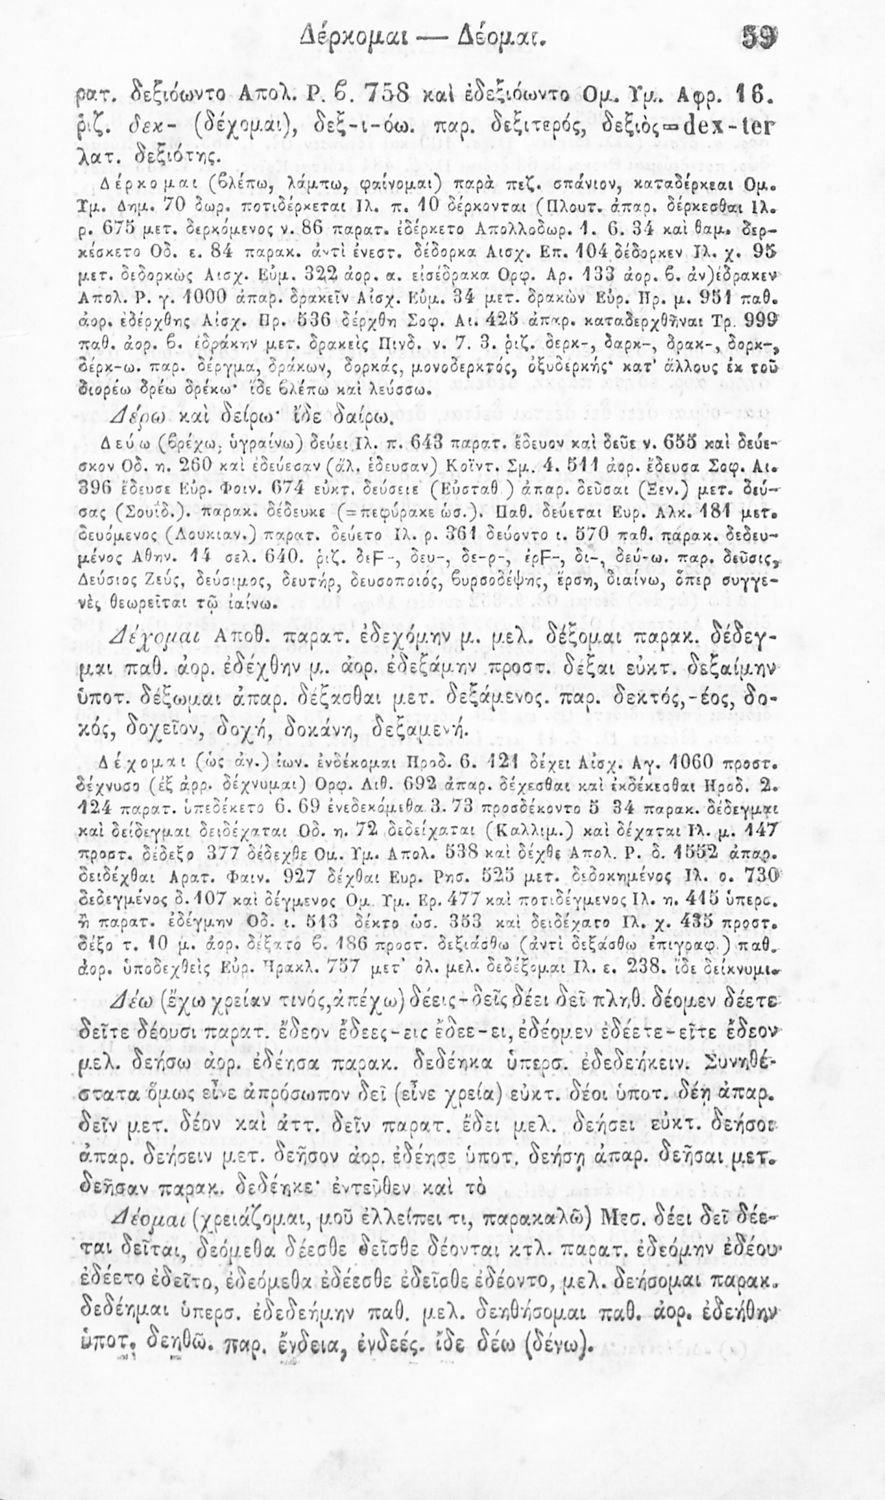 Δέρκομαι — Δέομαι. 59
ρατ. δεξιόωντο Απολ. Ρ. β. 758 καὶ ἐδεξιόωντο Ομ. Υμ. Αφρ. 16.
ῥιζ. δεκ- (δέχομαι), δεξ-ι-όω. παρ. δεξιτερός, δεξιὸς=dex-ter
λατ. δεξιότης.
Δέρκομαι (βλέπω, λάμπω, φαίνομαι) παρὰ πεζ. σπάνιον, καταδέρκεαι Ομ.
Υμ. Δημ. 70 δωρ. ποτιδέρκεται Ιλ. π. 10 δέρκονται (Πλουτ. ἀπαρ. δέρκεσθαι Ιλ.
ρ. 675 μετ. δερκόμενος ν. 86 παρατ. ἐδέρκετο Απολλοδωρ. 1. 6. 34 καὶ θαμ. δερ-
κέσκετο Οδ. ε. 84 παρακ. ἀντὶ ἐνεστ. δέδορκα Αισχ. Επ. 104 δέδορκεν Ιλ. χ. 95
μετ. δεδορκὼς Αισχ. Εὐμ. 322 ἀορ. α. εἰσέδρακα Ορφ. Αρ. 133 ἀορ. β. ἀν)έδρακεν
Απολ. Ρ. γ. 1000 ἀπαρ. δρακεῖν Αἰσχ. Εὐμ. 34 μετ. δρακὼν Εὐρ. Ηρ. μ. 951 παθ.
ἀορ. ἐδέρχθης Αἰσχ. Πρ. 536 δέρχθη Σοφ. Αι. 425 ἀπαρ. καταδερχθῆναι Τρ. 999
παθ. ἀορ. β. ἐδράκην μετ. δρακεὶς Πινδ. ν. 7. 3. ῥιζ. δερκ-, δαρκ-, δρακ-, δορκ-,
δέρκ-ω. παρ. δέργμα, δράκων, δορκάς, μονοδερκτός, ὀξυδερκής· κατ' ἄλλους ἐκ τοῦ
διορέω δρέω δρέκω· ἴδε βλέπω καὶ λεύσσω.
Δέρω καὶ δείρω· ἴδε δαίρω.
Δεύω (βρέχω, ὑγραίνω) δεύει Ιλ. π. 643 παρατ. ἔδευον καὶ δεῦε ν. 655 καὶ δεύε-
σκον Οδ. η. 260 καὶ ἐδεύεσαν (ἀλ. ἔδευσαν) Κοϊντ. Σμ. 4. 511 ἀορ. ἔδευσα Σοφ. Αι.
396 ἔδευσε Εὐρ. Φοιν. 674 εὐκτ. δεύσειε (Εὐσταθ.) ἀπαρ. δεῦσαι (Ξεν.) μετ. δεύ-
σας (Σουΐδ.). παρακ. δέδευκε (=πεφύρακε ὡσ.). Παθ. δεύεται Ευρ. Αλκ. 184 μετ.
δευόμενος (Λουκιαν.) παρατ. δεύετο Ιλ. ρ. 361 δεύοντο ι. 570 παθ. παρακ. δεδευ-
μένος Αθην. 14 σελ. 640. ῥιζ. δεϜ-, δευ-, δε-ρ-, ἐρϜ-, δι-, δεύ-ω. παρ. δεῦσις,
Δεύσιος Ζεύς, δεύσιμος, δευτήρ, δευσοποιός, βυρσοδέψης, ἔρση, διαίνω, ὅπερ συγγε-
νὲς θεωρεῖται τῷ ἰαίνω.
Δέχομαι Αποθ. παρατ. ἐδεχόμην μ. μελ. δέξομαι παρακ. δέδεγ-
μαι παθ. ἀορ. ἐδέχθην μ. ἀορ. ἐδεξάμην προστ. δέξαι εὐκτ. δεξαίμην
ὑποτ. δέξωμαι ἀπαρ. δέξασθαι μετ. δεξάμενος. παρ. δεκτός,-έος, δο-
κός, δοχεῖον, δοχή, δοκάνη, δεξαμενή.
Δέχομαι (ὡς ἀν.) ἰων. ἐνδέκομαι Ηροδ. 6. 121 δέχει Αἰσχ. Αγ. 1060 προστ.
δέχνυσο (ἐξ ἀρρ. δέχνυμαι) Ορφ. Λιθ. 692 ἀπαρ. δέχεσθαι καὶ ἐκδέκεσθαι Ηροδ. 2.
124 παρατ. ὑπεδέκετο 6. 69 ἐνεδεκόμεθα 3. 73 προσδέκοντο 5 34 παρακ. δέδεγμαι
καὶ δείδεγμαι δειδέχαται Οδ. η. 72 δεδείχαται (Καλλιμ.) καὶ δέχαται Ιλ. μ. 147
προστ. δέδεξο 377 δέδεχθε Ομ. Υμ. Απολ. 538 καὶ δέχθε Απολ. Ρ. δ. 1552 ἀπαρ.
δειδέχθαι Αρατ. Φαιν. 927 δέχθαι Ευρ. Ρησ. 525 μετ. δεδοκημένος Ιλ. ο. 730
δεδεγμένος δ. 107 καὶ δέγμενος Ομ. Υμ. Ερ. 477 καὶ ποτιδέγμενος Ιλ. η. 415 ὑπερσ.
ἢ παρατ. ἐδέγμην Οδ. ι. 513 δέκτο ὡσ. 353 καὶ δειδέχατο Ιλ. χ. 435 προστ.
δέξο τ. 10 μ. ἀορ. δέξατο β. 186 προστ. δεξιάσθω (ἀντὶ δεξάσθω ἐπιγραφ.) παθ.
ἀορ. ὑποδεχθεὶς Εὐρ. Ἡρακλ. 757 μετ' ὀλ. μελ. δεδέξομαι Ιλ. ε. 238. ἴδε δείκνυμι.
Δέω (ἔχω χρείαν τινός, ἀπέχω) δέεις-δεῖς δέει δεῖ πληθ. δέομεν δέετε
δεῖτε δέουσι παρατ. ἔδεον ἔδεες-εις ἔδεε-ει, ἐδέομεν ἐδέετε-εῖτε ἔδεον
μελ. δεήσω ἀορ. ἐδέησα παρακ. δεδέηκα ὑπερσ. ἐδεδεήκειν. Συνηθέ-
στατα ὅμως εἶνε ἀπρόσωπον δεῖ (εἶνε χρεία) εὐκτ. δέοι ὑποτ. δέῃ ἀπαρ.
δεῖν μετ. δέον καὶ ἀττ. δεῖν παρατ. ἔδει μελ. δεήσει εὐκτ. δεήσοι
ἀπαρ. δεήσειν μετ. δεῆσον ἀορ. ἐδέησε ὑποτ. δεήσῃ ἀπαρ. δεῆσαι μετ.
δεῆσαν παρακ. δεδέηκε· ἐντεῦθεν καὶ τὸ
Δέομαι (χρειάζομαι, μοῦ ἐλλείπει τι, παρακαλῶ) Μεσ. δέει δεῖ δέε-
ται δεῖται, δεόμεθα δέεσθε δεῖσθε δέονται κτλ. παρατ. ἐδεόμην ἐδέου
ἐδέετο ἐδεῖτο, ἐδεόμεθα ἐδέεσθε ἐδεῖσθε ἐδέοντο, μελ. δεήσομαι παρακ.
δεδέημαι ὑπερσ. ἐδεδεήμην παθ. μελ. δεηθήσομαι παθ. ἀορ. ἐδεήθην
ὑποτ. δεηθῶ. παρ. ἔνδεια, ἐνδεές. ἴδε δέω (δένω).